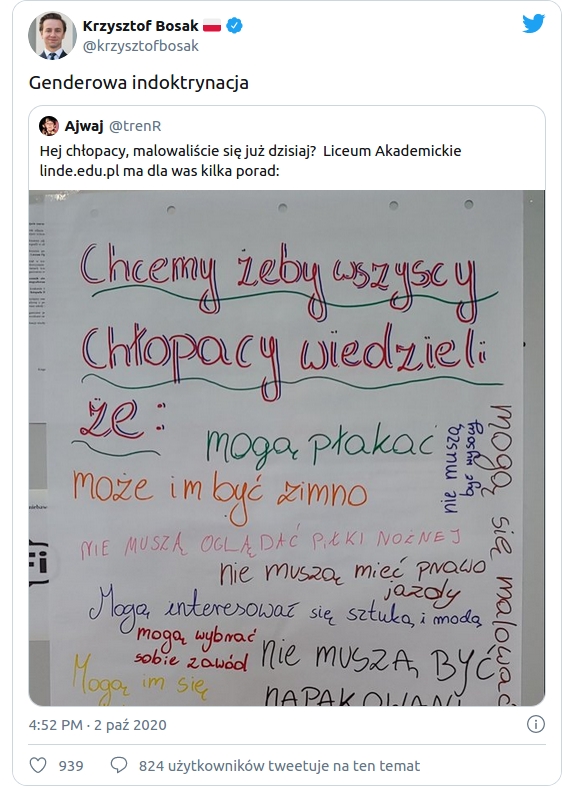 Krzysztof Bosak 🇵🇱
@krzysztofbosak
Genderowa indoktrynacja
Ajwaj @trenR
Hej chłopacy, malowaliście się już dzisiaj? Liceum Akademickie
linde.edu.pl ma dla was kilka porad:
Chcemy żeby wszyscy
Chłopacy wiedzieli
że:
mogą płakać
nie muszą
być wysocy
mogą się malować
może im być zimno
NIE MUSZĄ OGLĄDAĆ PIŁKI NOŻNEJ
nie muszą mieć prawo
jazdy
Mogą interesować się sztuką i modą
mogą wybrać
sobie zawód
nie MUSZĄ BYĆ
NAPAKOWANI
Mogą im się
4:52 PM · 2 paź 2020
939
824 użytkowników tweetuje na ten temat